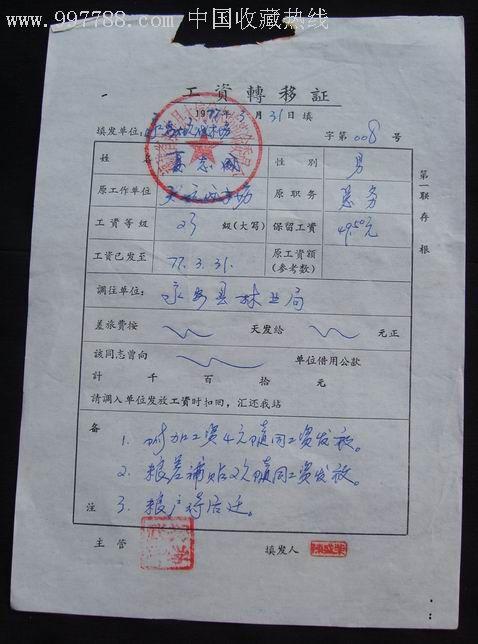 www.997788.com 中国收藏热线
工資轉移証
1977年3月31日填
填发单位: 字第008号
姓名 志 性别 男
原工作单位 原职务 总务
工資等级 23 级(大写) 保留工資 49.50元
工資已发至 77.3.31. 原工資額(参考数)
調往单位: 永安县林业局
差旅费按 天发給 元正
該同志曾向 单位借用公款
計 千 百 拾 元
請調入单位发放工資时扣回,汇还我站
备注
1. 附加工资4元随同工资发放。
2. 粮差補贴2元随同工资发放。
3. 粮户
主管 填发人
第一联存根